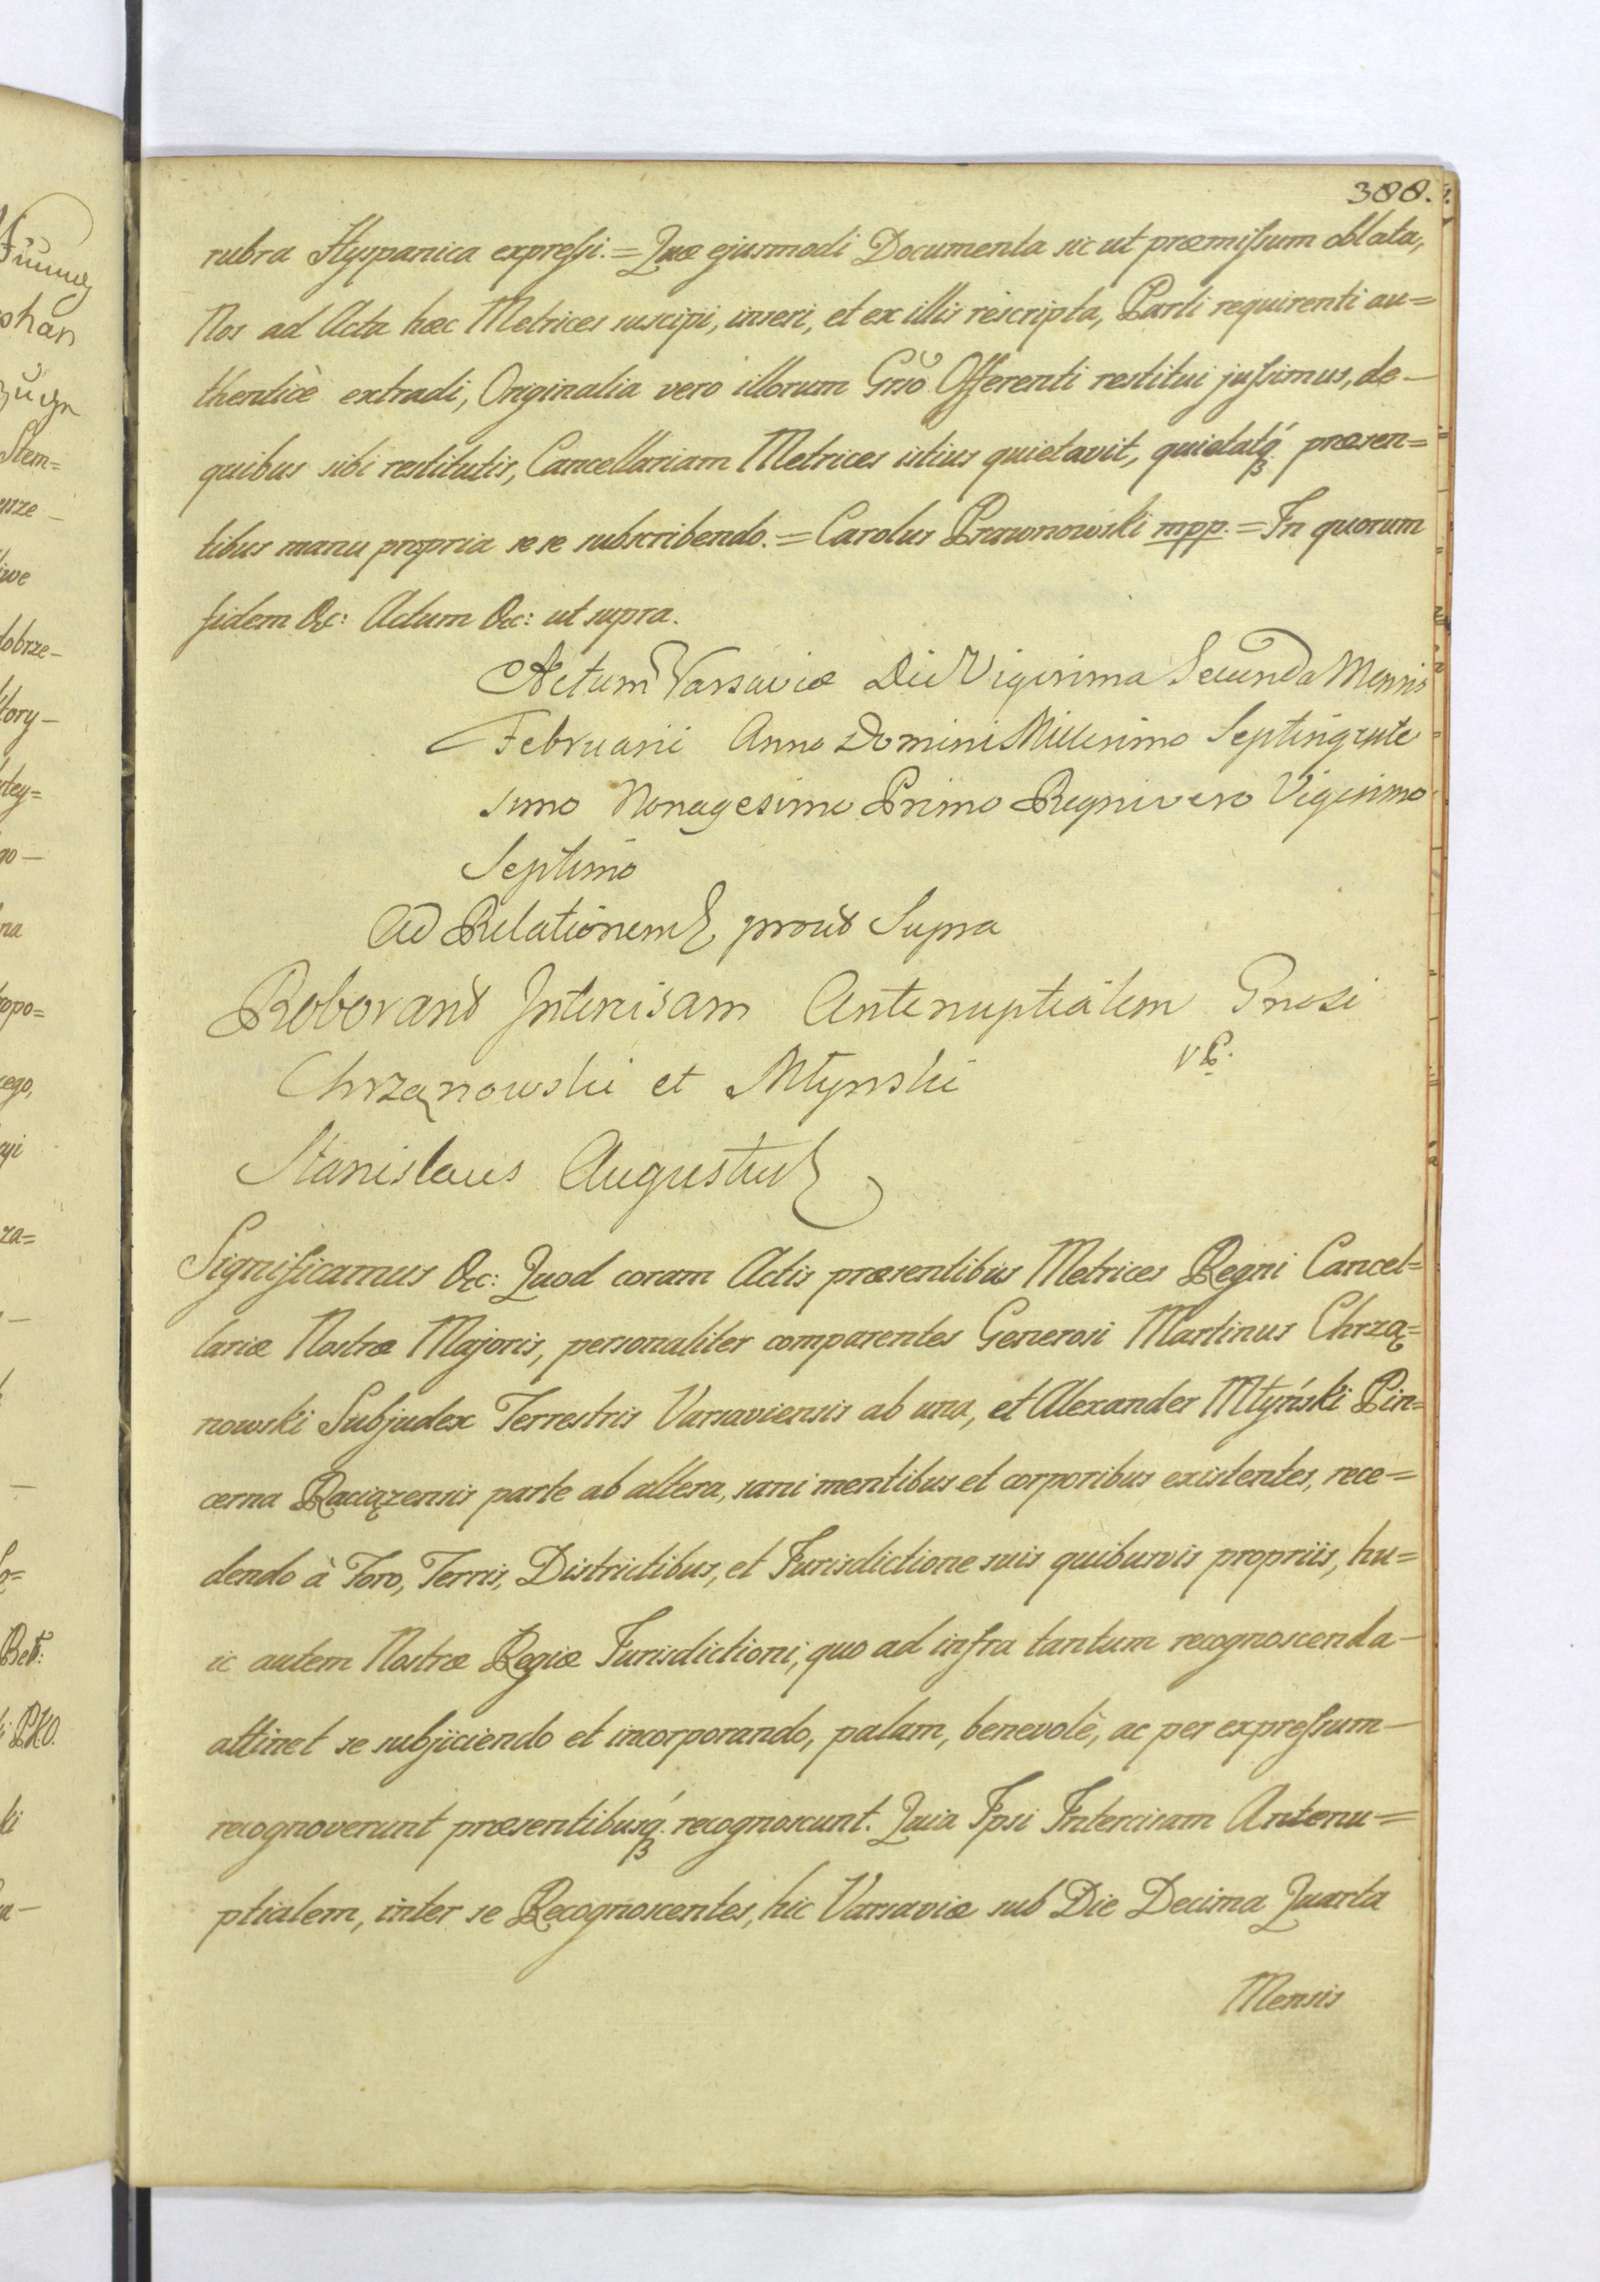 388.
rubra Hyspanica expreſsi. = Quæ ejusmodi Documenta sic ut præmiſsum oblata,
Nos ad Acta hæc Metrices suscipi, inseri, et ex illis rescripta, Parti requirenti au=
thenticè extradi, Originalia vero illorum Gnso Offerenti restitui juſsimus, de—
quibus sibi restitutis, Cancellariam Metrices istius quietavit, quietatq́ꝫ præsen=
tibus manu propria se se subscribendo. = Carolus Prawnowski mpp. = In quorum
fidem &c: Actum &c: ut supra.
Actum Varsaviæ Die Vigesima Secunda Mensis
Februarii Anno Domini Millesimo Septingente
simo Nonagesimo Primo Regni vero Vigesimo
Septimo
Ad Relationem prout Supra
Roborand Intercisam Antenuptialem Gnosi
Chrzanowski et Młynski
Stanislaus Augustus
Significamus &c: Quod coram Actis præsentibus Metrices Regni Cancel=
lariæ Nostræ Majoris, personaliter comparentes Generosi Martinus Chrzą=
nowski Subjudex Terrestris Varsaviensis ab una, et Alexander Młyński Pin=
cerna Raciązensis parte ab altera, sani mentibus et corporibus existentes, rece=
dendo à Foro, Terris, Districtibus, et Jurisdictione suis quibusvis propriis, hu=
ic autem Nostræ Regiæ Jurisdictioni, quo ad infra tantum recognoscenda—
attinet se subjiciendo et incorporando, palam, benevolè, ac per expreſsum—
recognoverunt præsentibusq́ꝫ recognoscunt. Quia Ipsi Intercisam Antenu=
ptialem, inter se Recognoscentes, hic Varsaviæ sub Die Decima Quarta
Mensis